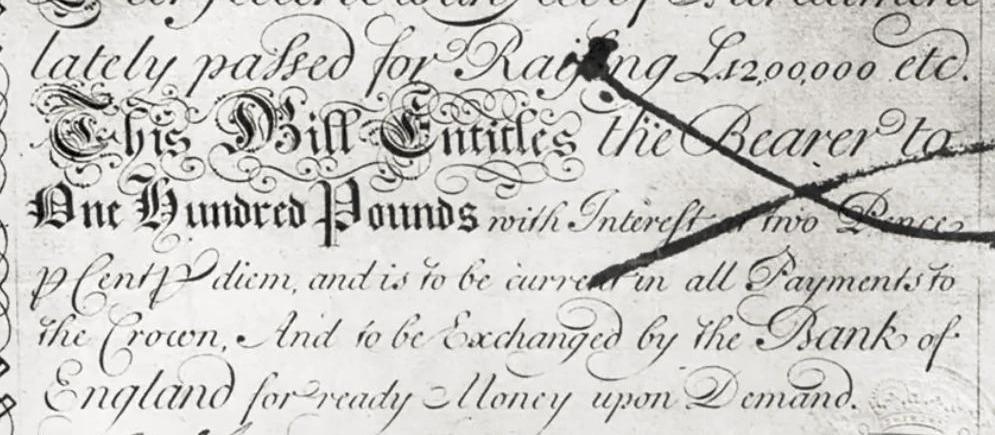 lately paſsed for Raiſing £1200,000 etc.
This Bill Entitles the Bearer to
One Hundred Pounds with Intereſt at two Pence
p Cent p diem, and is to be current in all Payments to
the Crown, And to be Exchanged by the Bank of
England for ready Money upon Demand.